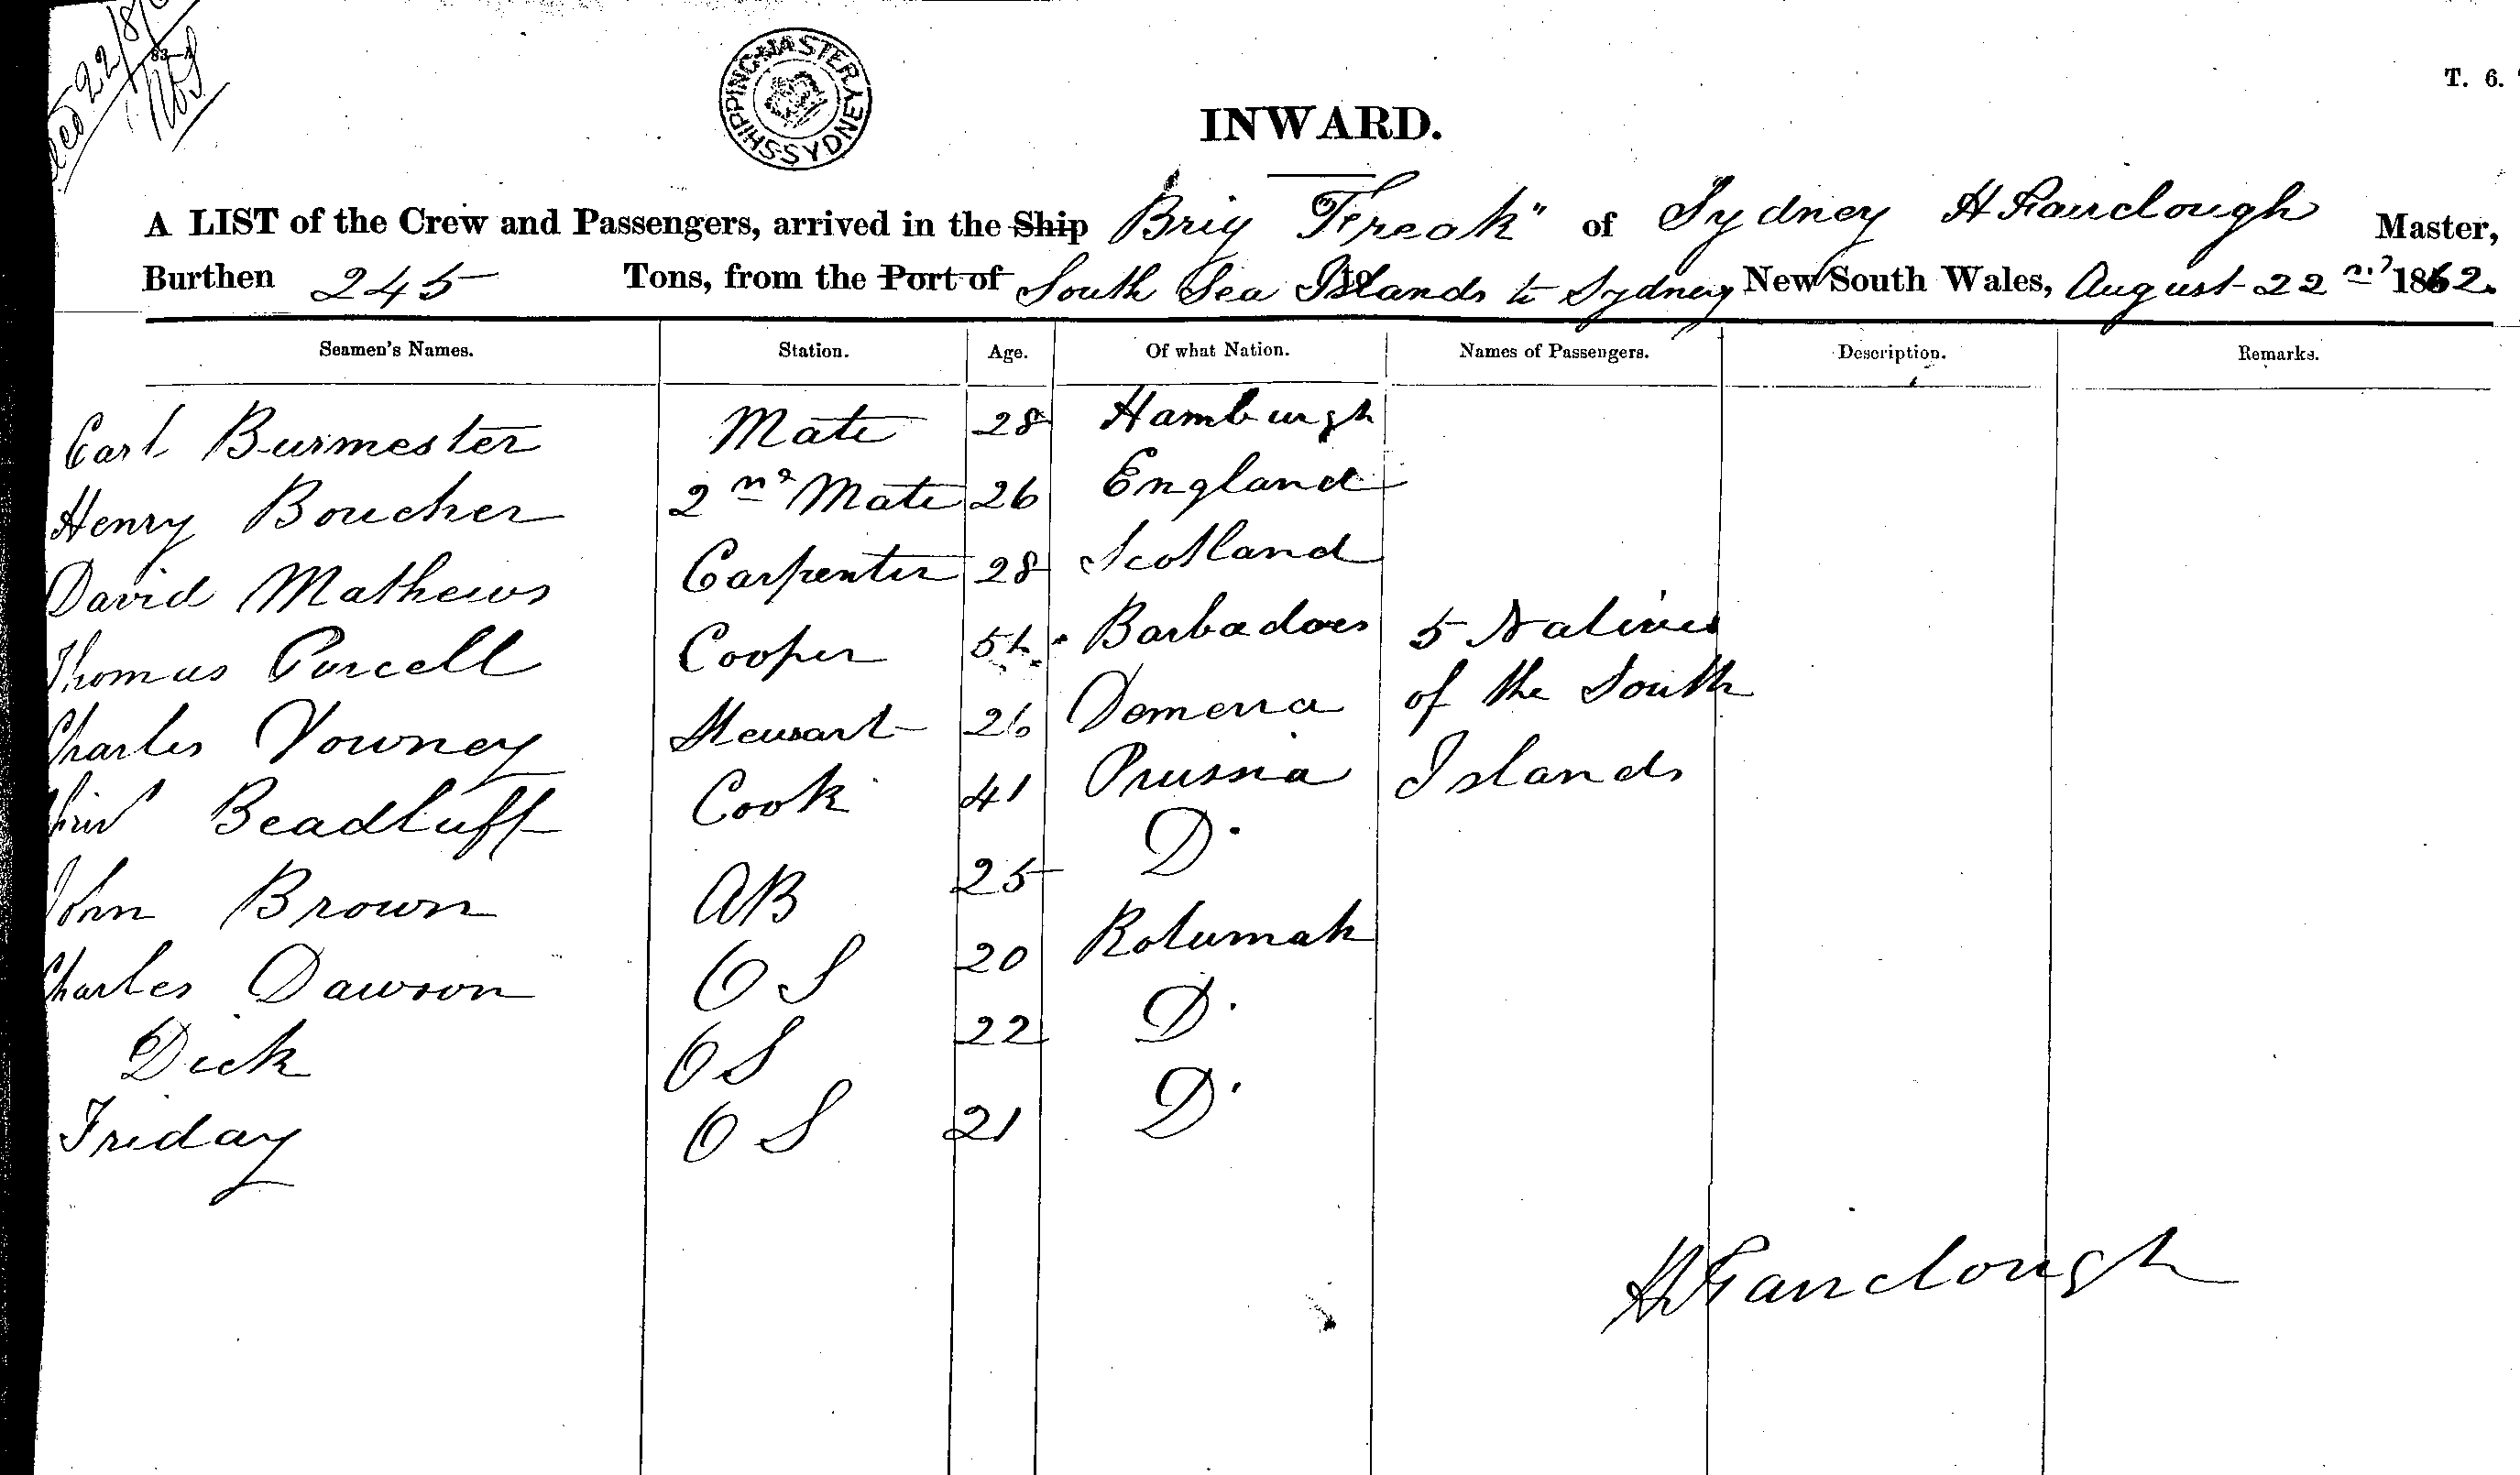 rec'd 22/8/6
83-A
SHIPPING MASTER SYDNEY
T. 6.
INWARD.
A LIST of the Crew and Passengers, arrived in the Ship Brig "Freak" of Sydney H Fairclough Master,
Burthen 245 Tons, from the Port of South Sea Islands to Sydney New South Wales, August 22nd 1862.
Seamen's Names. Station. Age. Of what Nation. Names of Passengers. Description. Remarks.
Carl Burmester Mate 28 Hamburgh
Henry Boucher 2nd Mate 26 England
David Mathews Carpenter 28 Scotland
Thomas Purcell Cooper Barbadoes 5 Natives
Charles Vowney Steward 26 Demerra of the South
Beadluff Cook 41 Prussia Islands
John Brown AB 25 Do
Charles Dawson OS 20 Rotumah
Dick OS 22 Do
Friday OS 21 Do
H Fairclough